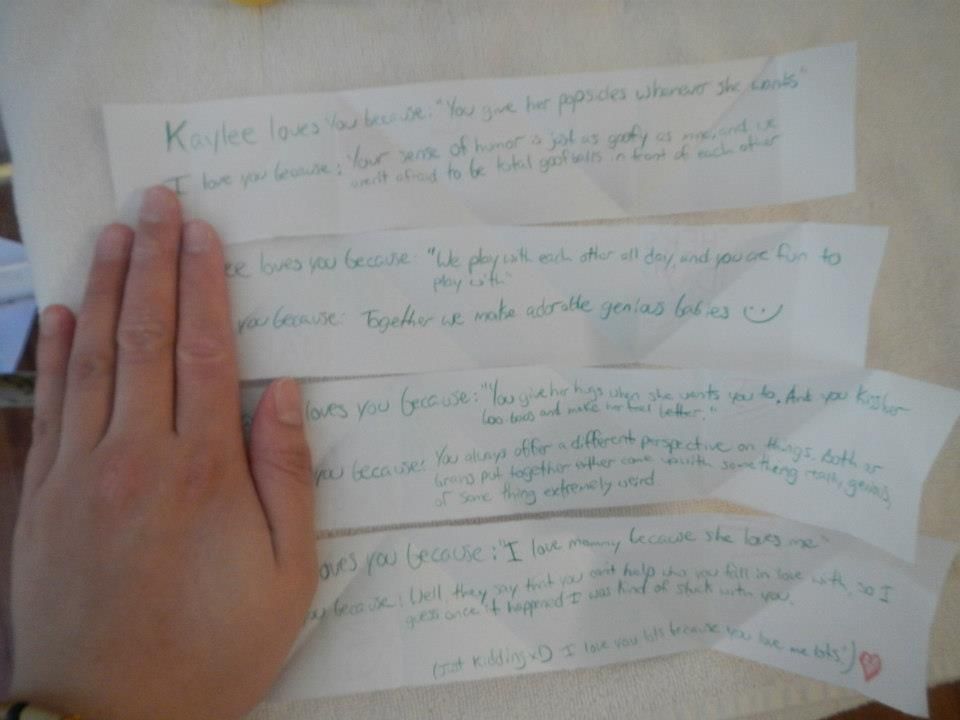 Kaylee loves you because: "You give her popsicles whenever she wants"
I love you because: Your sense of humor is just as goofy as mine, and we
aren't afraid to be total goofballs in front of each other
ee loves you because: "We play with each other all day, and you are fun to
play with"
you because: Together we make adorable genious babies
loves you because: "You give her hugs when she wants you to. And you kiss her
boo boos and make her feel better."
you because: You always offer a different perspective on things. Both or
brains put together either come up with something really genious,
or some thing extremely weird.
oves you because: "I love mommy because she loves me"
you because: Well they say that you can't help who you fall in love with, so I
guess once it happened I was kind of stuck with you.
(Just kidding xD I love you lots because you love me lots!)